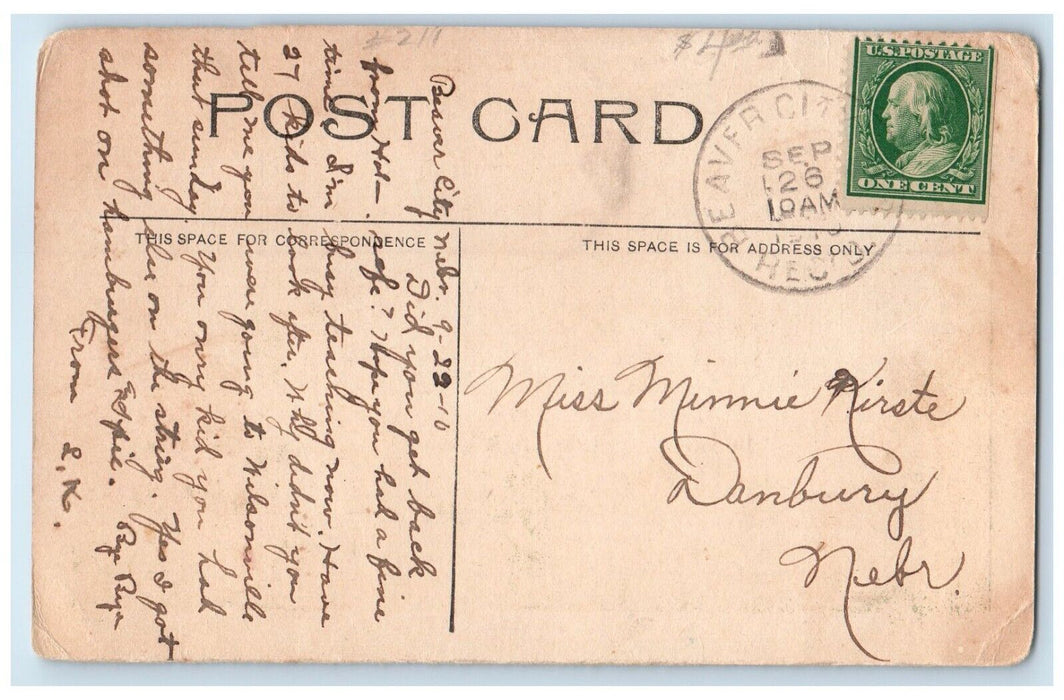 #211
$4.00
POST CARD
U.S. POSTAGE
ONE CENT
BEAVER CITY
SEP
26
10 AM
1910
REC'D
THIS SPACE FOR CORRESPONDENCE
THIS SPACE IS FOR ADDRESS ONLY
Beaver City Nebr. 9-22-10
Did you get back
from safe? Hope you had a fine
time. I'm busy teaching now. Have
27 kids to look after. Why didn't you
tell me you were going to Wilsonville
that sunday. You onry kid you had
something else on the string. Yes I got
shot on hamburgers & pie. Bye Bye
From L.K.
Miss Minnie Kirste
Danbury
Nebr.